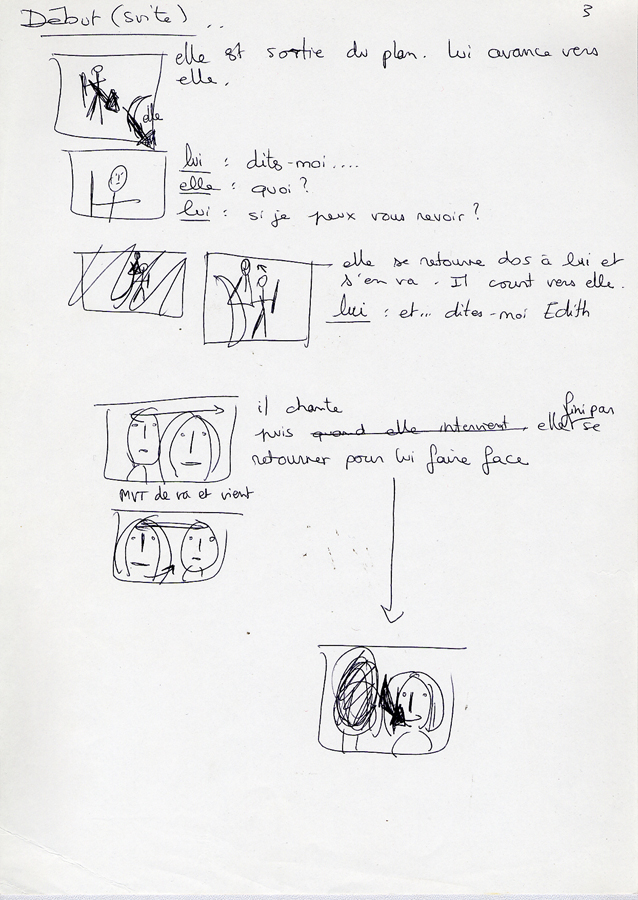 Début (suite) ..
3
elle est sortie du plan. lui avance vers
elle.
elle
lui : dites-moi....
elle : quoi ?
lui : si je peux vous revoir ?
elle se retourne dos à lui et
s'en va. Il court vers elle.
lui : et... dites-moi Edith
il chante
fini par
puis quand elle intervient, elle se
retourner pour lui faire face
MVT de va et vient